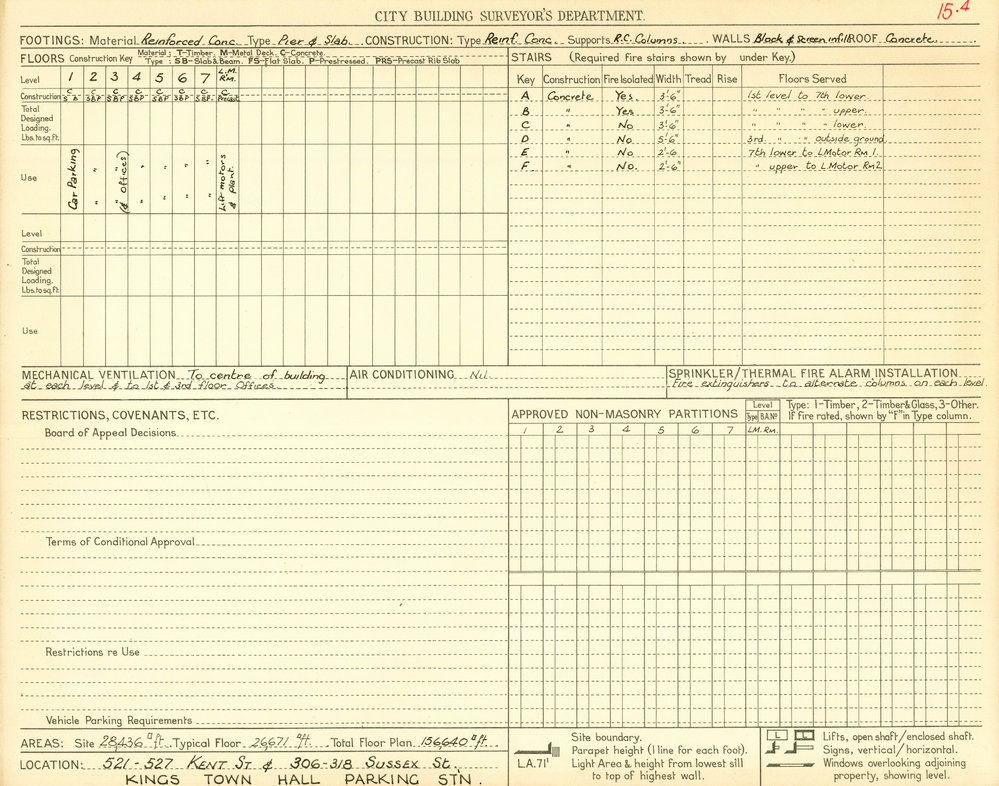 CITY BUILDING SURVEYOR'S DEPARTMENT.
15.4
FOOTINGS: Material Reinforced Conc Type Pier & Slab. CONSTRUCTION: Type Reinf. Conc. Supports R.C. Columns WALLS Block & Screen infill ROOF Concrete
FLOORS Construction Key Material; T-Timber, M-Metal Deck, C-Concrete.
Type: SB-Slab & Beam. FS-Flat Slab. P-Prestressed. PRS-Precast Rib Slab
Level 1 2 3 4 5 6 7 L.M. RM.
Construction C C C C C C C C
S B SBP SBP SBP SBP SBP SBP. Precast
Total Designed Loading. Lbs. to sq. ft.
Use Car Parking " " (& offices) " " " " Lift motors & plant.
Level
Construction
Total Designed Loading. Lbs. to sq. ft.
Use
STAIRS (Required fire stairs shown by under Key.)
Key Construction Fire Isolated Width Tread Rise Floors Served
A Concrete Yes. 3'-6" 1st level to 7th lower
B " Yes 3'-6" " " " " upper.
C " No 3'-6" " " " " lower.
D " No 5'-6" 3rd. " " " outside ground.
E " No 2'-6 7th lower to L.Motor Rm 1.
F " No. 2'-6" " upper to L.Motor Rm 2
MECHANICAL VENTILATION To centre of building
at each level & to 1st & 3rd floor Offices
AIR CONDITIONING Nil.
SPRINKLER/THERMAL FIRE ALARM INSTALLATION
Fire extinguishers to alternate columns on each level.
RESTRICTIONS, COVENANTS, ETC.
Board of Appeal Decisions
Terms of Conditional Approval
Restrictions re Use
Vehicle Parking Requirements
APPROVED NON-MASONRY PARTITIONS Level Type B.A.No Type: 1-Timber, 2-Timber & Glass, 3-Other.
If Fire rated, shown by "F" in Type column.
1 2 3 4 5 6 7 L.M. Rm.
AREAS: Site 28,436 □ft. Typical Floor 26,671 □ft. Total Floor Plan 156,640 □ft.
LOCATION: 521-527 KENT ST & 306-318 SUSSEX ST.
KINGS TOWN HALL PARKING STN.
Site boundary.
Parapet height (1 line for each foot).
L.A.71' Light Area & height from lowest sill
to top of highest wall.
L L Lifts, open shaft/enclosed shaft.
Signs, vertical/horizontal.
Windows overlooking adjoining
property, showing level.